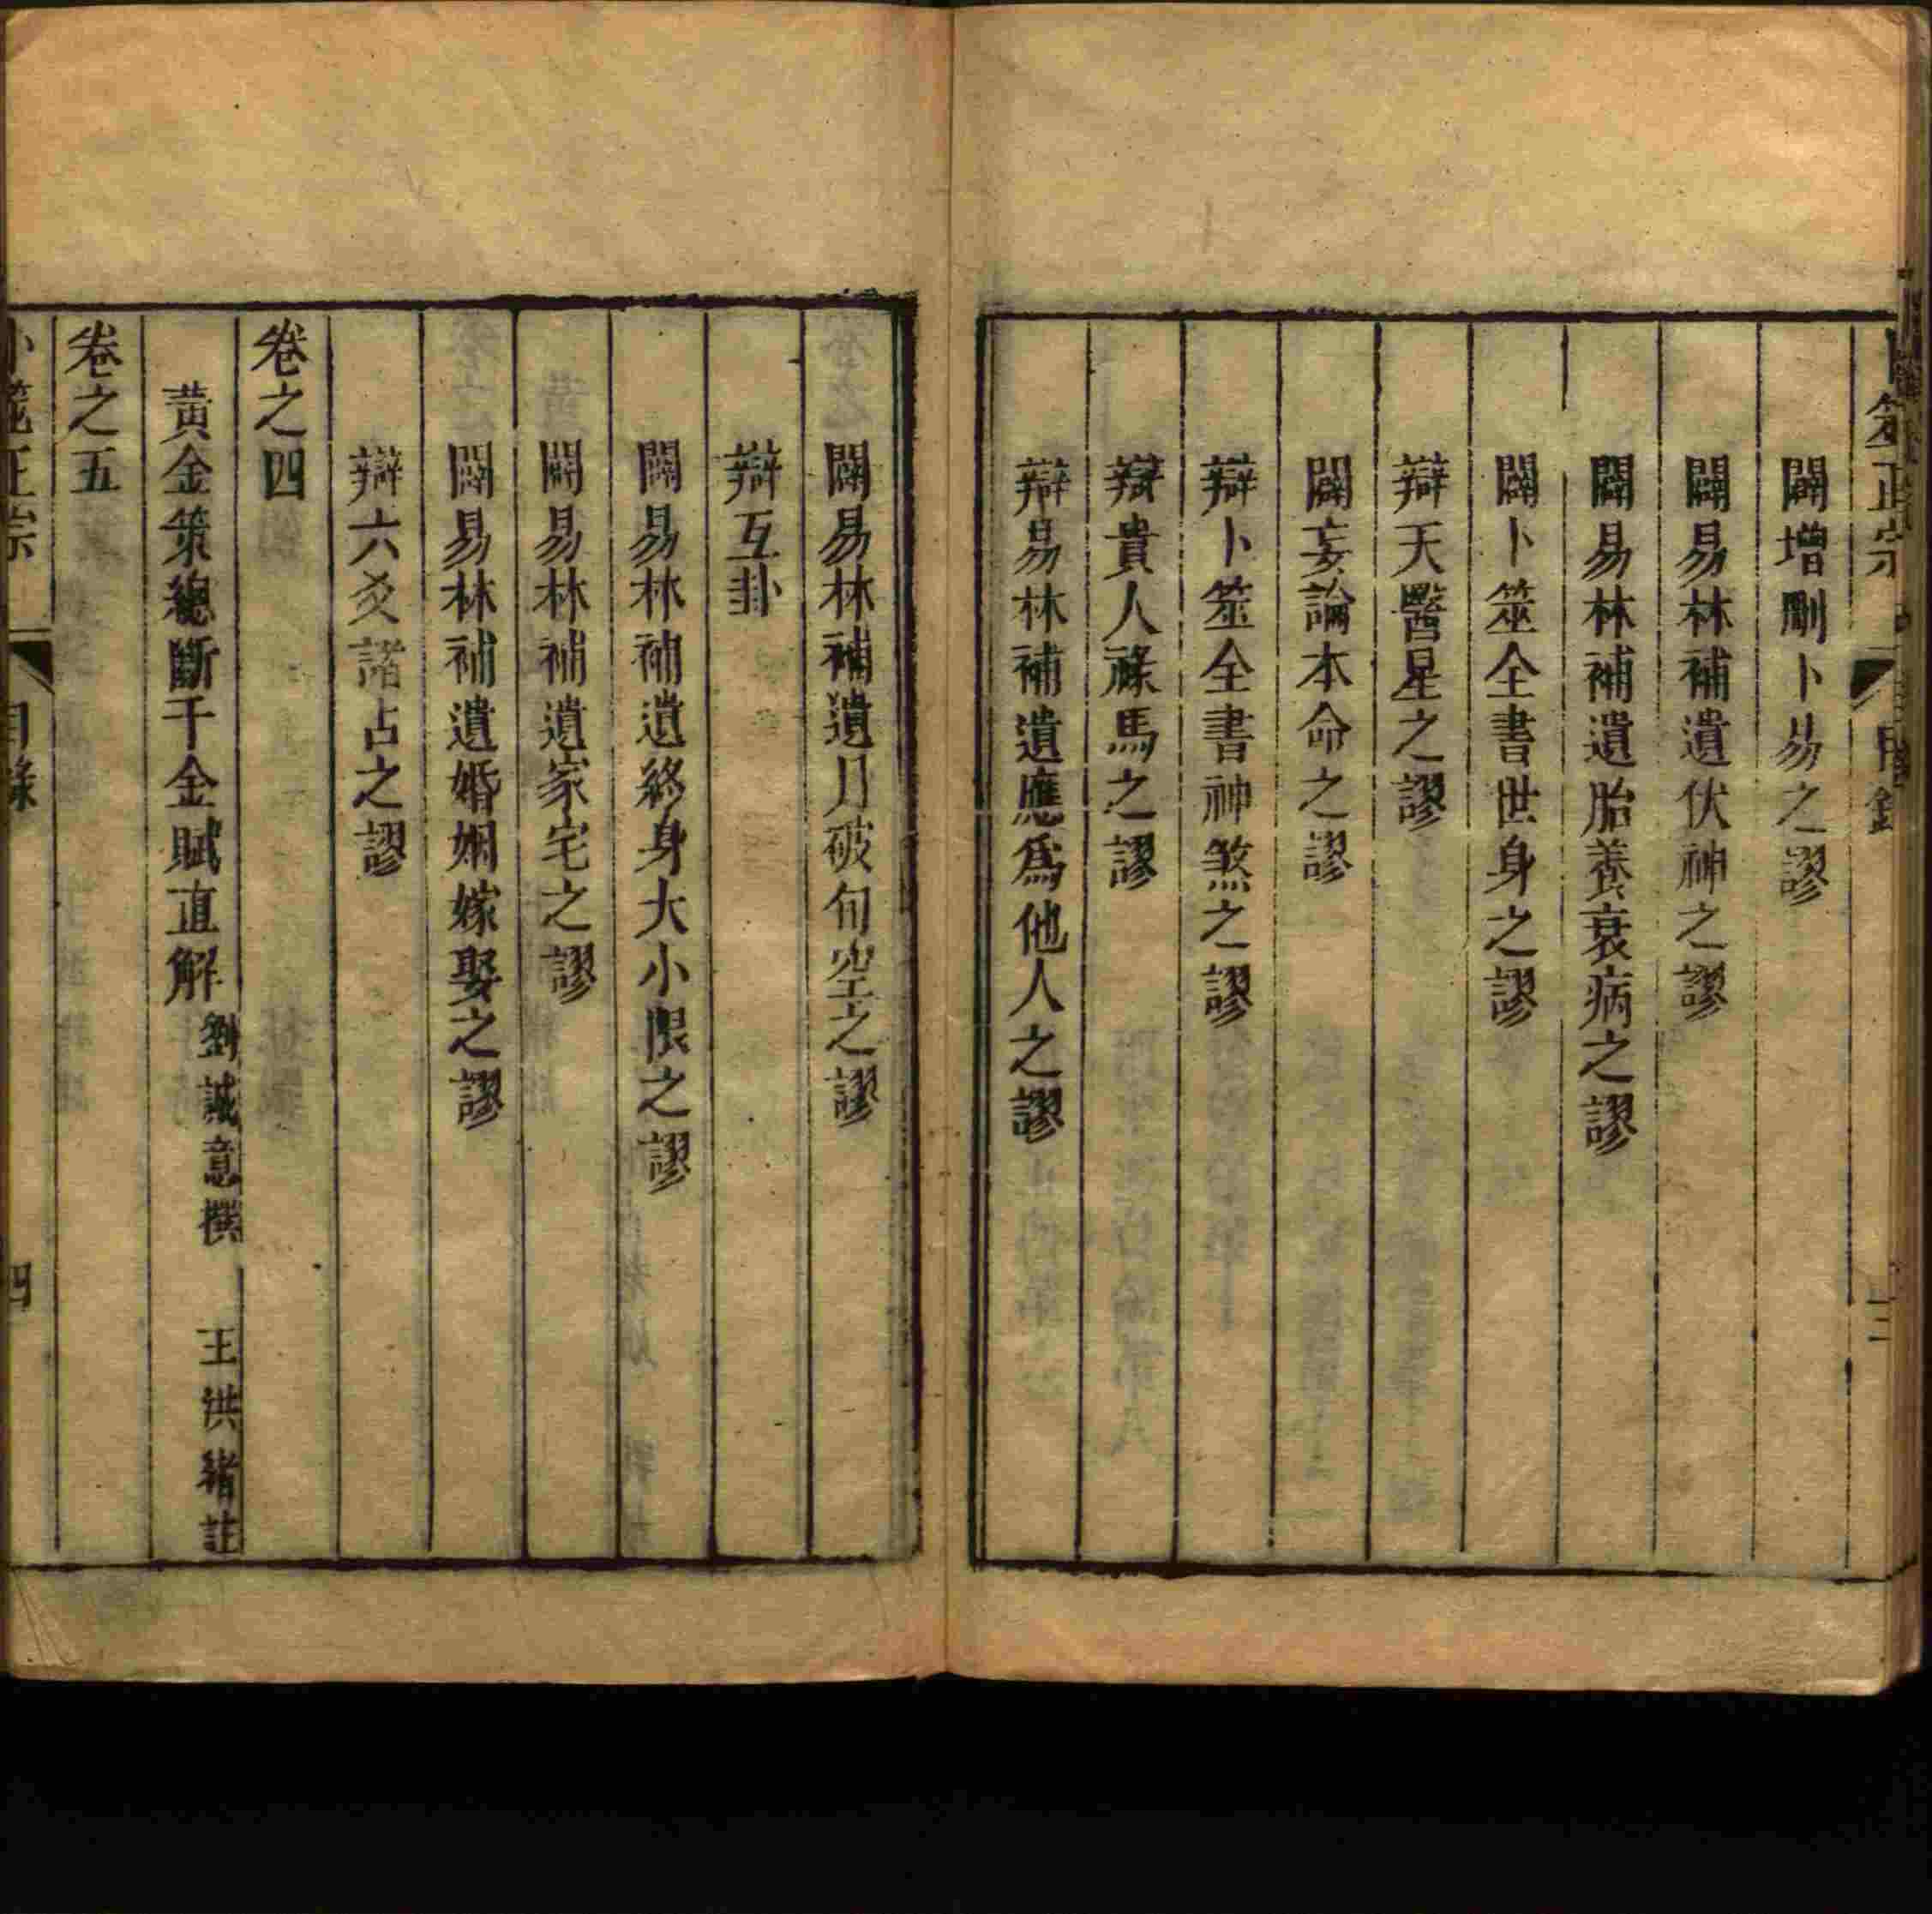 卜筮正宗 目錄 三
闢增刪卜易之謬
闢易林補遺伏神之謬
闢易林補遺胎養衰病之謬
闢卜筮全書世身之謬
辯天醫星之謬
闢妄論本命之謬
辯卜筮全書神煞之謬
辯貴人祿馬之謬
辯易林補遺應爲他人之謬
闢易林補遺月破旬空之謬
辯互卦
闢易林補遺終身大小限之謬
闢易林補遺家宅之謬
闢易林補遺婚姻嫁娶之謬
辯六爻諸占之謬
卷之四
黃金策總斷千金賦直解 劉誠意撰 王洪緒註
卷之五
卜筮正宗 目錄 四